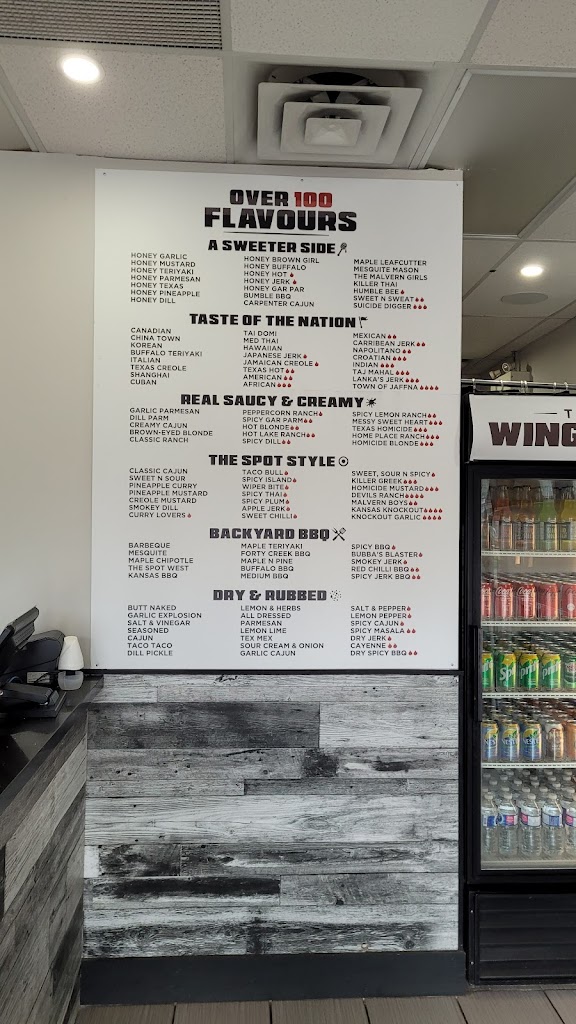 OVER 100
FLAVOURS
A SWEETER SIDE
HONEY GARLIC
HONEY MUSTARD
HONEY TERIYAKI
HONEY PARMESAN
HONEY TEXAS
HONEY PINEAPPLE
HONEY DILL
HONEY BROWN GIRL
HONEY BUFFALO
HONEY HOT
HONEY JERK
HONEY GAR PAR
BUMBLE BBQ
CARPENTER CAJUN
MAPLE LEAFCUTTER
MESQUITE MASON
THE MALVERN GIRLS
KILLER THAI
HUMBLE BEE
SWEET N SWEAT
SUICIDE DIGGER
TASTE OF THE NATION
CANADIAN
CHINA TOWN
KOREAN
BUFFALO TERIYAKI
ITALIAN
TEXAS CREOLE
SHANGHAI
CUBAN
TAI DOMI
MED THAI
HAWAIIAN
JAPANESE JERK
JAMAICAN CREOLE
TEXAS HOT
AMERICAN
AFRICAN
MEXICAN
CARRIBEAN JERK
NAPOLITANO
CROATIAN
INDIAN
TAJ MAHAL
LANKA'S JERK
TOWN OF JAFFNA
REAL SAUCY & CREAMY
GARLIC PARMESAN
DILL PARM
CREAMY CAJUN
BROWN-EYED BLONDE
CLASSIC RANCH
PEPPERCORN RANCH
SPICY GAR PARM
HOT BLONDE
HOT LAKE RANCH
SPICY DILL
SPICY LEMON RANCH
MESSY SWEET HEART
TEXAS HOMICIDE
HOME PLACE RANCH
HOMICIDE BLONDE
THE SPOT STYLE
CLASSIC CAJUN
SWEET N SOUR
PINEAPPLE CURRY
PINEAPPLE MUSTARD
CREOLE MUSTARD
SMOKEY DILL
CURRY LOVERS
TACO BULL
SPICY ISLAND
WIPER BITE
SPICY THAI
SPICY PLUM
APPLE JERK
SWEET CHILLI
SWEET, SOUR N SPICY
KILLER GREEK
HOMICIDE MUSTARD
DEVILS RANCH
MALVERN BOYS
KANSAS KNOCKOUT
KNOCKOUT GARLIC
BACKYARD BBQ
BARBEQUE
MESQUITE
MAPLE CHIPOTLE
THE SPOT WEST
KANSAS BBQ
MAPLE TERIYAKI
FORTY CREEK BBQ
MAPLE N PINE
BUFFALO BBQ
MEDIUM BBQ
SPICY BBQ
BUBBA'S BLASTER
SMOKEY JERK
RED CHILLI BBQ
SPICY JERK BBQ
DRY & RUBBED
BUTT NAKED
GARLIC EXPLOSION
SALT & VINEGAR
SEASONED
CAJUN
TACO TACO
DILL PICKLE
LEMON & HERBS
ALL DRESSED
PARMESAN
LEMON LIME
TEX MEX
SOUR CREAM & ONION
GARLIC CAJUN
SALT & PEPPER
LEMON PEPPER
SPICY CAJUN
SPICY MASALA
DRY JERK
CAYENNE
DRY SPICY BBQ
WING